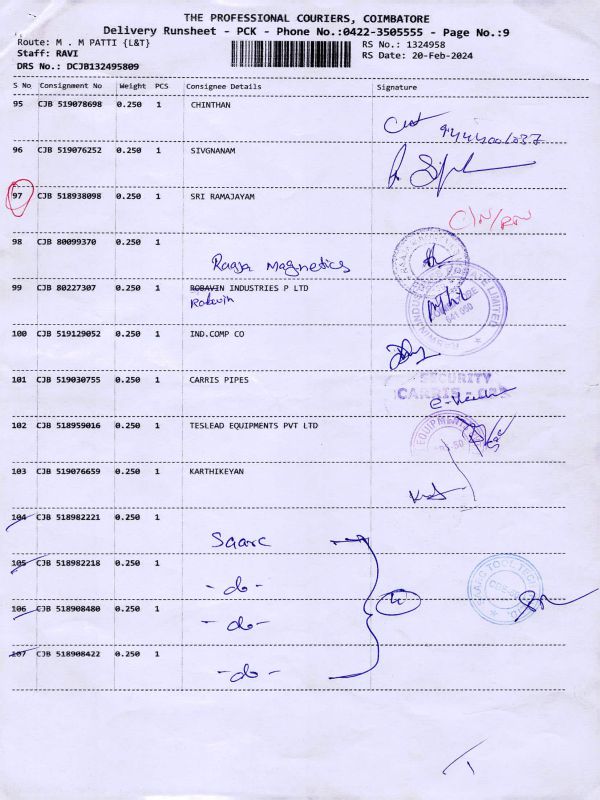 THE PROFESSIONAL COURIERS, COIMBATORE
Delivery Runsheet - PCK - Phone No.:0422-3505555 - Page No.:9
Route: M . M PATTI {L&T} RS No.: 1324958
Staff: RAVI RS Date: 20-Feb-2024
DRS No.: DCJB132495809
S No Consignment No Weight PCS Consignee Details Signature
95 CJB 519078698 0.250 1 CHINTHAN
96 CJB 519076252 0.250 1 SIVGNANAM
97 CJB 518938098 0.250 1 SRI RAMAJAYAM
C/N/RN
98 CJB 80099370 0.250 1
Raaja Magnetics
99 CJB 80227307 0.250 1 ROBAVIN INDUSTRIES P LTD
Robavin
100 CJB 519129052 0.250 1 IND.COMP CO
101 CJB 519030755 0.250 1 CARRIS PIPES
SECURITY
CARRIS -
102 CJB 518959016 0.250 1 TESLEAD EQUIPMENTS PVT LTD
EQUIPMENTS
103 CJB 519076659 0.250 1 KARTHIKEYAN
104 CJB 518982221 0.250 1
Saarc
105 CJB 518982218 0.250 1
-do-
106 CJB 518908480 0.250 1
-do-
4
SAARC TOOL TECH
107 CJB 518908422 0.250 1
-do-